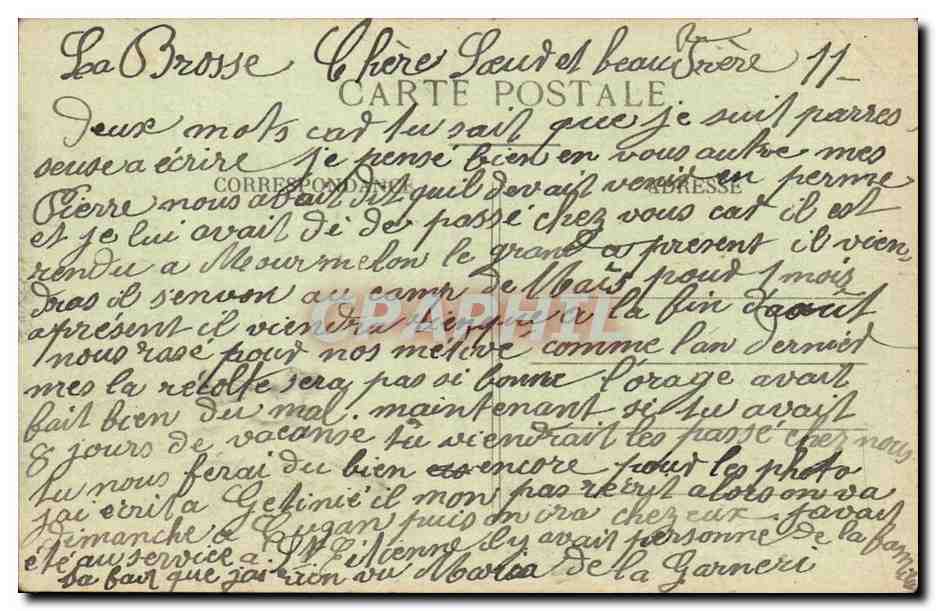 La Brosse Chère Sœur et beau Frère 11
CARTE POSTALE
Deux mots car tu sait que je suit parres
seuse a écrire je pensé bien en vous autre mes
CORRESPONDANCE ADRESSE
Pierre nous avait dit quil devait venir en perme
et je lui avait di de passé chez vous car il est
rendu a Mourmelon le grand a présent il vien
dras il s'envon au camp de Maïs pour 1 mois
CPARAMA
aprésent il viendra à la fin daout
nous pour nos métive comme lan dernier
mes la récolte sera pas si bonne l'orage avait
fait bien du mal. maintenant si tu avait
8 jours de vacanse tu viendrait les passé chez nous
tu nous ferai du bien encore pour les photo
jai écrit a il mon pas récrit alors on va
dimanche a Lugan puis on ira chez eux. javait
été au service a St Etienne il y avait personne de la famille
sa fait que jai rien vu Maria de la Garneri